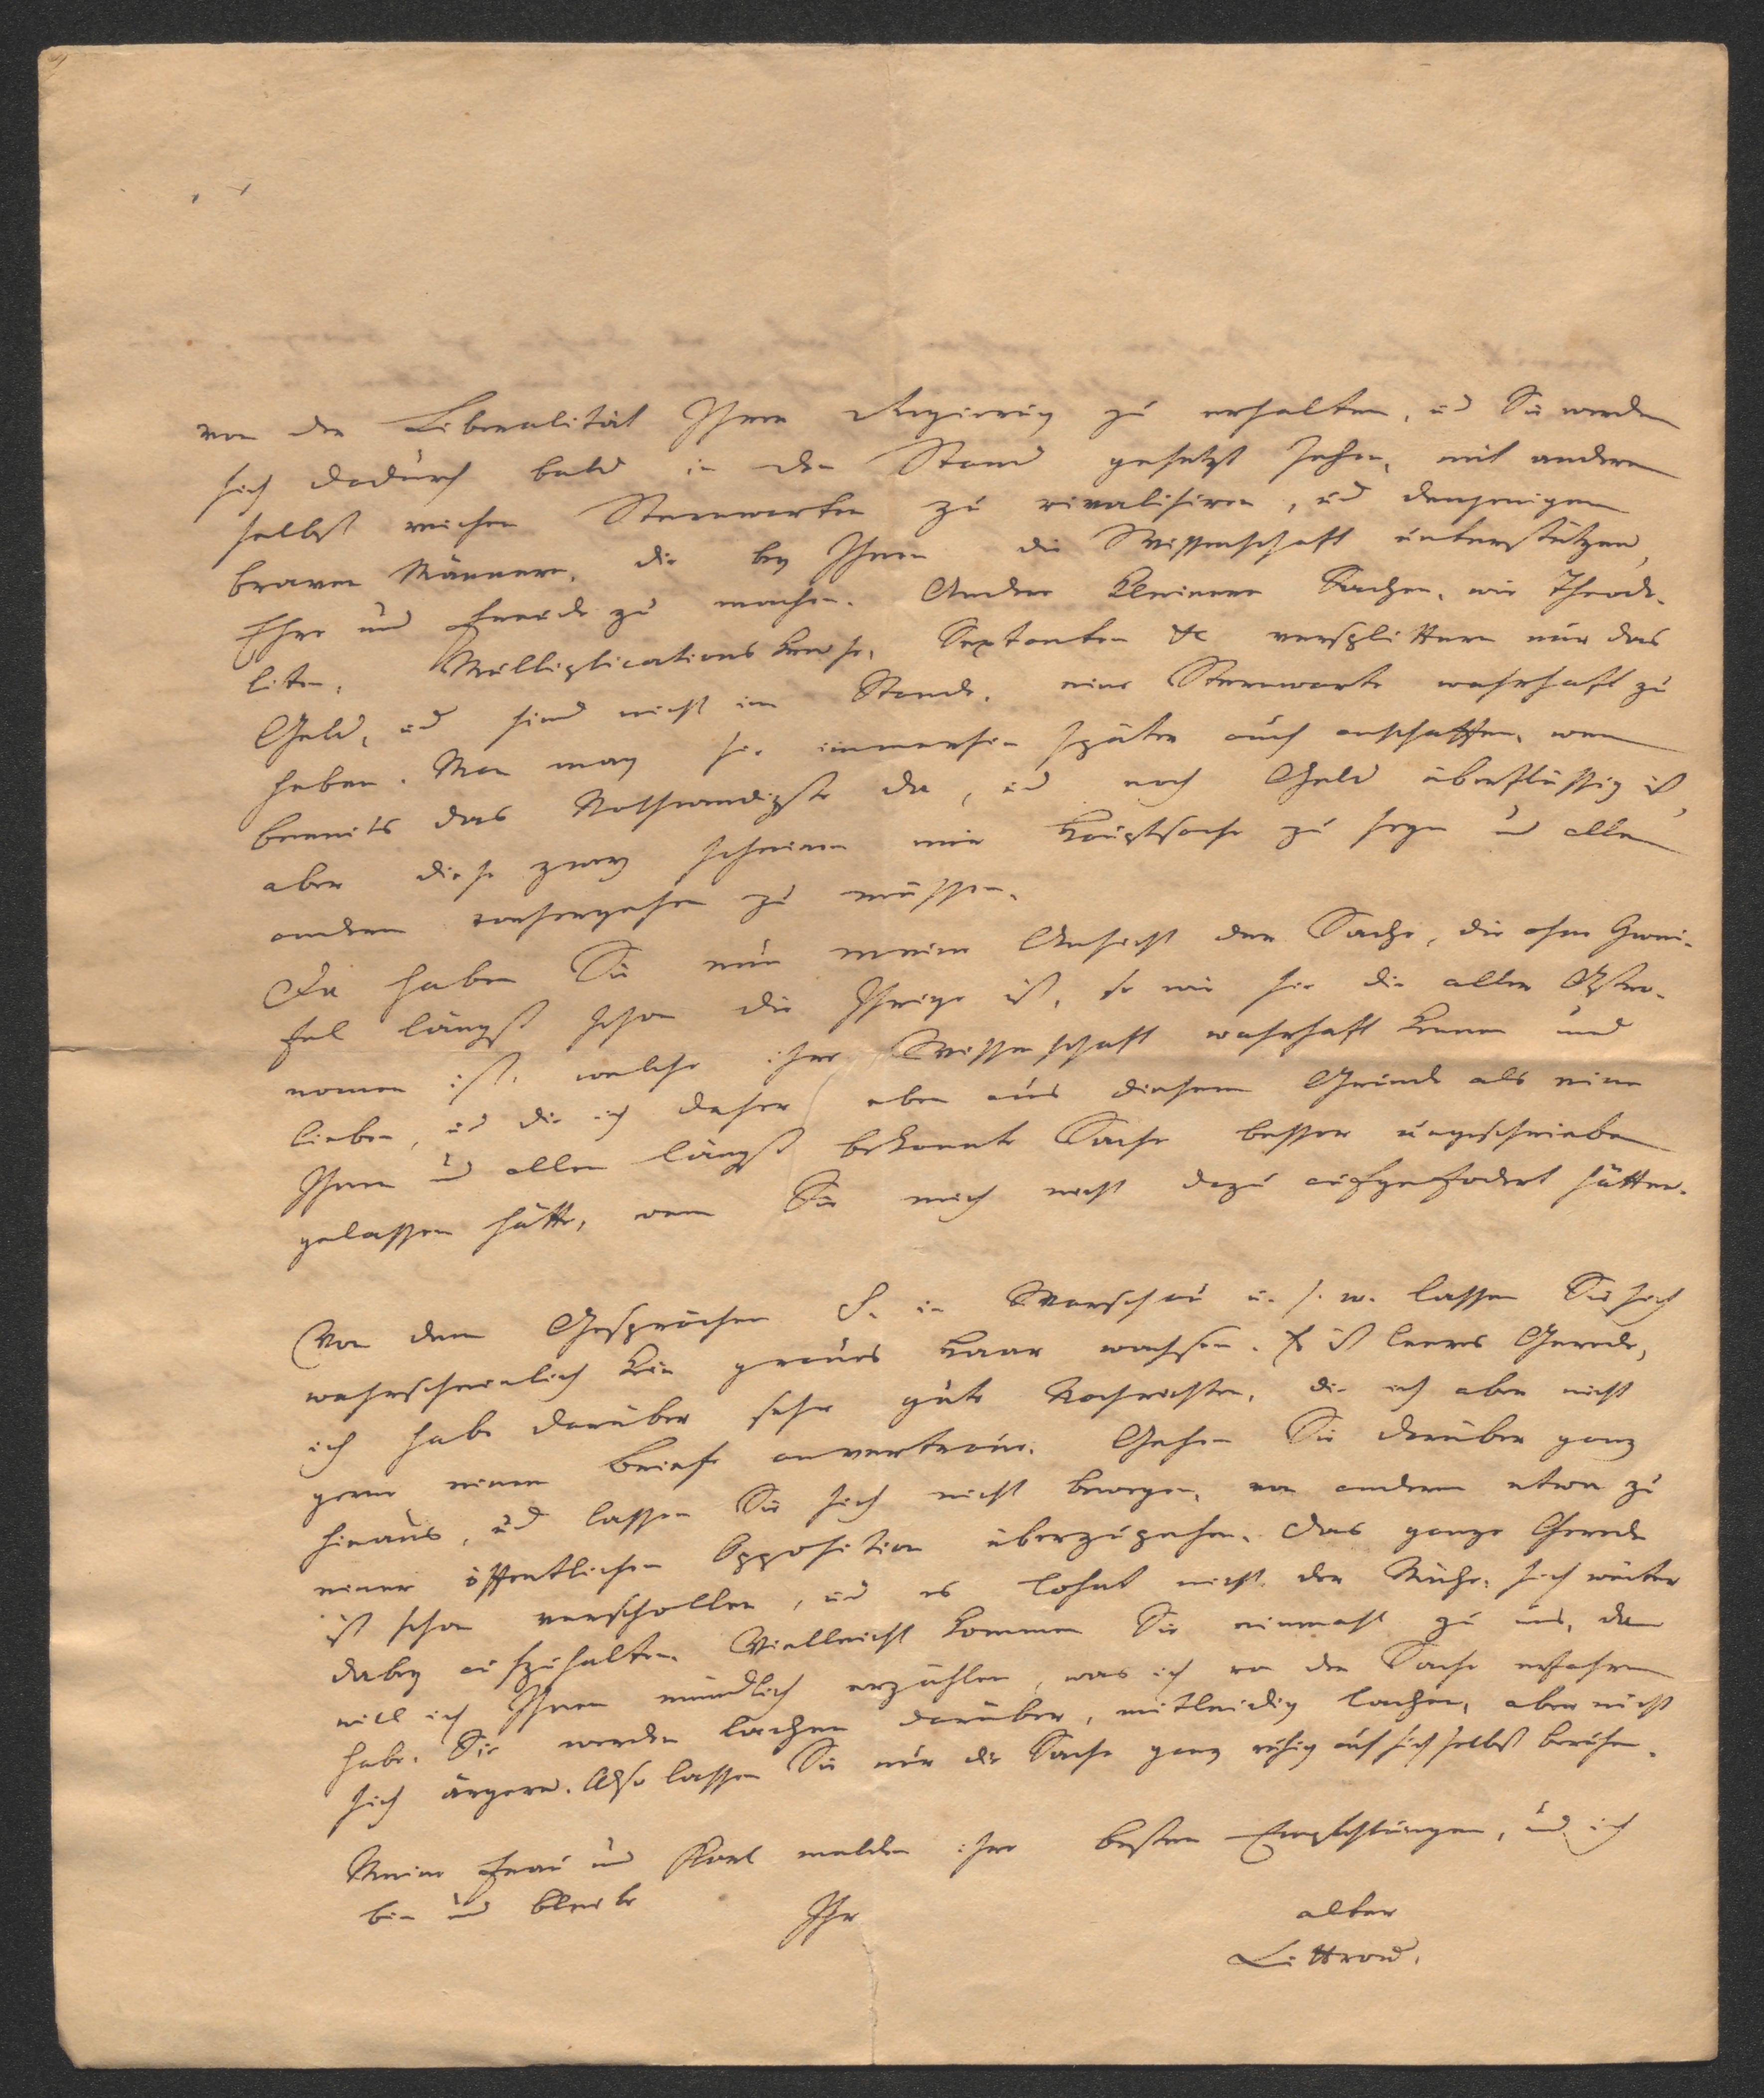 von der Liberalität Ihrer Regierung zu erhalten, und Sie werden
sich dadurch bald in den Stand gesetzt sehen, mit andern
selbst reichen Sternwarten zu rivalisiren, und denjenigen
braven Männern, die bey Ihnen die Wissenschaft unterstützen,
Ehre und Freude zu machen. Andere kleinere Sachen, wie Theodo-
liten, Multiplicationskreise, Sextanten &c versplittern nur das
Geld, und sind nicht im Stande, eine Sternwarte wahrhaft zu
heben. Man mag sie immerhin später auch anschaffen, wenn
bereits das Nothwendigste da, und noch Geld überflüssig ist,
aber diese zwey scheinen mir Hauptsache zu seyn und allen
andern vorhergehen zu müssen.
Da haben Sie nun meine Ansicht der Sache, die ohne Zwei-
fel längst schon die Ihrige ist, so wie sie die aller Astro-
nomen ist, welche ihre Wissenschaft wahrhaft kennen und
lieben, und die ich daher eben aus diesem Grunde als eine
Ihnen und allen längst bekannte Sache besser ungeschrieben
gelassen hätte, wenn Sie mich nicht dazu aufgefodert hätten.
Von den Gesprächen S. in Warschau u. s. w. lassen Sie sich
wahrscheinlich kein graues Haar wachsen. Es ist leeres Gerede,
ich habe darüber sehr gute Nachrichten, die ich aber nicht
gerne einem Briefe anvertraue. Gehen Sie darüber ganz
hinaus, und lassen Sie sich nicht bewegen, von andern etwa zu
einer öffentlichen Opposition überzugehen. Das ganze Gerede
ist schon verschollen, und es lohnt nicht der Mühe, sich weiter
dabey aufzuhalten. Vielleicht kommen Sie einmahl zu uns, dann
will ich Ihnen mündlich erzählen, was ich von der Sache erfahren
habe. Sie werden lachen darüber, mitleidig lachen, aber nicht
sich ärgern. Also lassen Sie nur die Sache ganz ruhig auf sich selbst beruhen.
Meine Frau und Karl melden ihre besten Empfehlungen, und ich
bin und bleibe Ihr alter
Littrow.